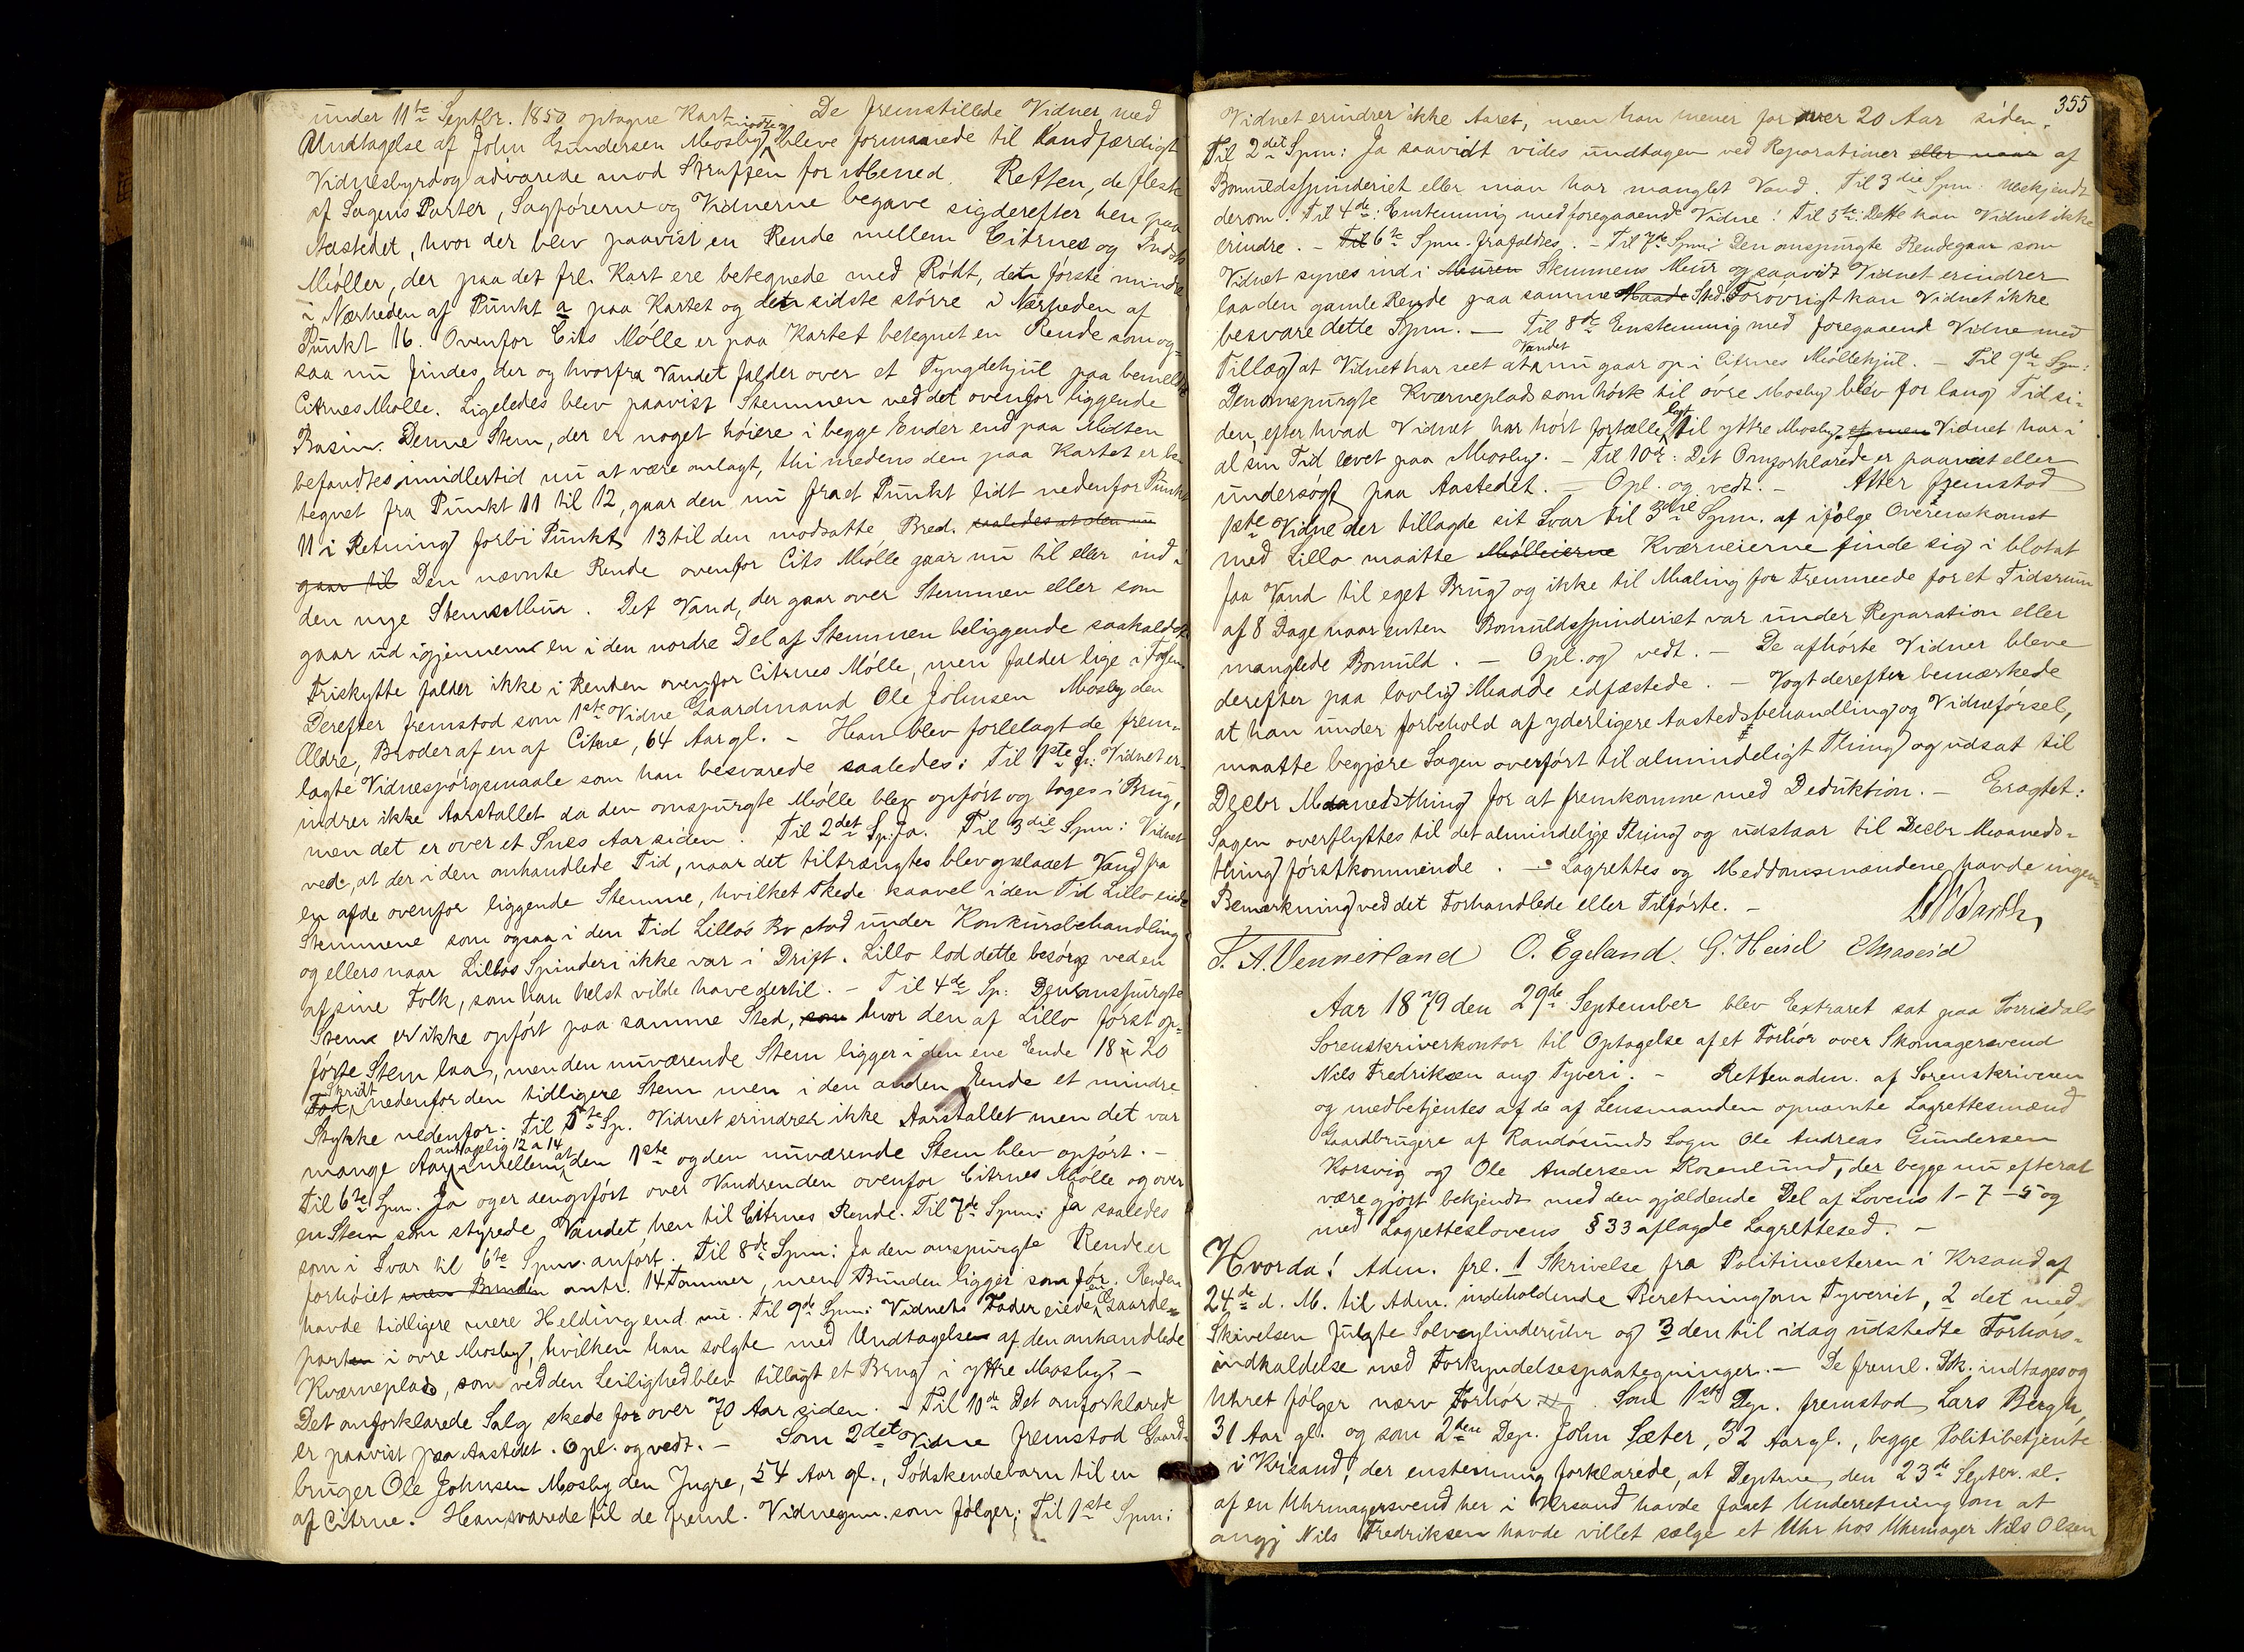 under 11te Septbr. 1850 optagne Kart. De fremstillede Vidner med
Undtagelse af John Gundersen Mosby bleve formanede til sandfærdigt
Vidnesbyrd og advarede mod Straffen for Mened. Retten, de fleste
af Sagens Parter, Sagførerne og Vidnerne begave sig derefter hen paa
Aastedet, hvor der blev paavist en Rende mellem Citrnes og Indst
Møller, der paa det frl. Kart ere betegnede med Rødt, den første mindre
i Nærheden af Punkt a paa Kartet og den sidste større i Nærheden af
Punkt 16. Ovenfor Cits Mølle er paa Kartet betegnet en Rende som og-
saa nu findes der og hvorfra Vandet falder over et Tyngdehjul paa bemeldte
Citrnes Mølle. Ligeledes blev paavist Stemmen ved det ovenfor liggende
Basin. Denne Stem, der er noget høiere i begge Ender end paa Midten
befandtes imidlertid nu at være omlagt, thi medens den paa Kartet er be-
tegnet fra Punkt 11 til 12, gaar den nu fra et Punkt lidt nedenfor Punkt
11 i Retning forbi Punkt 13 til den modsatte Bred. saaledes at den nu
gaar til Den nævnte Rende ovenfor Cits Mølle gaar nu til eller ind i
den nye Stems Mur. Det Vand, der gaar over Stemmen eller som
gaar ud igjennem en i den nordre Del af Stemmen beliggende saakaldet
Friskytte falder ikke i Renden ovenfor Citrnes Mølle, men falder lige i Fossen.
Derefter fremstod som 1ste Vidne Gaardmand Ole Johnsen Mosby den
Ældre, Broder af en af Citrne, 64 Aar gl. - Han blev forelagt de frem-
lagte Vidnespørgsmaale som han besvarede saaledes: Til 1ste Sp: Vidnet er-
indrer ikke Aarstallet da den omspurgte Mølle blev opført og toges i Brug,
men det er over et Snes Aar siden. Til 2det Sp: Ja. Til 3die Spm: Vidnet
ved, at der i den omhandlede Tid, naar det tiltrængtes blev opladet Vand fra
en af de ovenfor liggende Stemme, hvilket skede saavel i den Tid Lillo eiede
Stemmene som ogsaa i den Tid Lillos Bo stod under Konkursbehandling
og ellers naar Lillos Spinderi ikke var i Drift. Lillo lod dette besørge ved en
af sine Folk, som han helst vilde have dertil. - Til 4de Sp: Den omspurgte
Stem er ikke opført paa samme Sted, som hvor den af Lillo først op-
førte Stem laa, men den nuværende Stem ligger i den ene Ende 18 à 20
Fod Skridt nedenfor den tidligere Stem men i den anden Ende et mindre
Stykke nedenfor. Til 5te Sp. Vidnet erindrer ikke Aarstallet men det var
mange Aar antagelig 12 a 14 mellem at den 1ste og den nuværende Stem blev opført. -
Til 6te Spm. Ja og er den opført over Vandrenden ovenfor Citrnes Mølle og over
en Stem som styrede Vandet hen til Citrnes Rende. Til 7de Spm: Ja saaledes
som i Svar til 6te Spm. anført. Til 8de Spm: Ja den omspurgte Rende er
forhøiet men Bunden omtr. 14 Tommer, men Bunden ligger som før. Renden
havde tidligere mere Helding end nu. Til 9de Spm: Vidnets Fader eiede en Gaarde-
parten i øvre Mosby, hvilken han solgte med Undtagelse af den omhandlede
Kværneplads, som ved den Leilighed blev tillagt et Brug i yttre Mosby. -
Det omforklarede Salg skede for over 70 Aar siden. - Til 10de Det omforklarede
er paavist paa Aastedet. Opl. og vedt. - Som 2det Vidne fremstod Gaard-
bruger Ole Johnsen Mosby den Yngre, 54 Aar gl., Sødskendebarn til en
af Citrne. Han svarede til de freml. Vidnespm. som følger: Til 1ste Spm:
355
Vidnet erindrer ikke Aaret, men han mener for over 20 Aar siden.
Til 2det Spm: Ja saavidt vides undtagen ved Reparationer eller naar af
Bomuldsspinderiet eller man har manglet Vand. Til 3die Spm: Ubekjendt
derom. Til 4de: Enstemmig med foregaaende Vidne! Til 5te: Dette kan Vidnet ikke
erindre. - Til 6te Spm. frafaldes. - Til 7de Spm: Den omspurgte Rende gaar som
Vidnet synes ind i Muren Stemmens Mur og saavidt Vidnet erindrer
laa den gamle Rende paa samme Maade Sted. Forøvrigt kan Vidnet ikke
besvare dette Spm. - Til 8de Enstemmig med foregaaende Vidne med
Tillæg at Vidnet har seet at Vandet nu gaar op i Citrnes Møllehjul. - Til 9de Spm:
Den omspurgte Kværneplads som hørte til øvre Mosby blev for lang Tid si-
den, efter hvad Vidnet har hørt fortælle, lagt til yttre Mosby, men Vidnet har i
al sin Tid levet paa Mosby. - Til 10de: Det Omforklarede er paavist eller
undersøgt paa Aastedet. - Opl. og vedt. - Atter fremstod
1ste Vidne der tillagde sit Svar til 3die Spm. at ifølge Overenskomst
med Lillo maatte Mølleierne Kværneierne finde sig i blot at
faa Vand til eget Brug og ikke til Maling for Fremmede for et Tidsrum
af 8 Dage naar enten Bomuldsspinderiet var under Reparation eller
manglede Bomuld. - Opl. og vedt. - De afhørte Vidner bleve
derefter paa lovlig Maade edfæstede. - Vogt derefter bemærkede
at han under forbehold af yderligere Aastedsbehandling og Vidneførsel,
maatte begjære Sagen overført til almindeligt Thing og udsat til
Decbr Maanedsthing for at fremkomme med Deduktion. - Eragtet:
Sagen overflyttes til det almindelige Thing og udstaar til Decbr Maaneds-
thing førstkommende. - Lagrettes og Meddomsmændene havde ingen
Bemærkning ved det Forhandlede eller Tilførte. -
F. A. Vennerland O. Egeland. G. Heisel
Aar 1879 den 29de September blev Extraret sat paa Torrisdals
Sorenskriverkontor til Optagelse af et Forhør over Skomagersvend
Nils Fredriksen ang Tyveri. - Retten adm. af Sorenskriveren
og medbetjentes af de af Lensmanden opnævnte Lagrettesmænd
Gaardbrugere af Randøsunds Sogn Ole Andreas Gundersen
Korsvig og Ole Andersen Rosenlund, der begge nu efter at
være gjort bekjendt med den gjældende Del af Lovens 1-7-5 og
med Lagretteslovens § 33 aflagde Lagrettesed. -
Hvorda! Adm. frl. 1 Skrivelse fra Politimesteren i Krsand af
24de d. M. til Adm. indeholdende Beretning om Tyveriet, 2 det med
Skrivelsen fulgte Sølvcylinderuhr og 3 den til idag udstedte Forhørs-
indkaldelse med Forkyndelsespaategninger. - De freml. Dok. indtages og
Uhret følger nærv Forhør. Som 1ste Dep. fremstod Lars Bergh,
31 Aar gl. og som 2den Dep. John Sæter, 32 Aar gl., begge Politibetjente
i Krsand, der enstemmig forklarede, at Deptrne den 23de Septbr. sl.
af en Uhrmagersvend her i Krsand havde faaet Underretning om at
angj Nils Fredriksen havde villet sælge et Uhr hos Uhrmager Nils Olsen